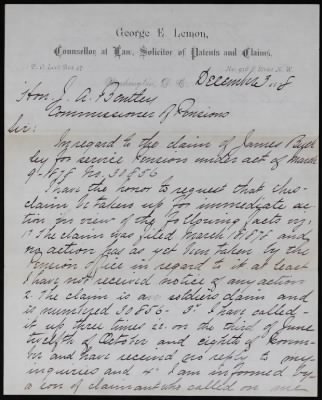 George E. Lemon,
Counsellor at Law, Solicitor of Patents and Claims,
P. O. Lock Box 47 No. 918 F Street N. W.
Washington, D. C. December 3, 8
Hon. J. A. Bentley
Commissioner of Pensions
Sir:
In regard to the claim of James
ley for service Pension under act of March
9-1878 No. 30856
I have the honor to request that this
claim be taken up for immediate ac
tion in view of the following facts viz:
1st The claim was filed March 1878 and
no action has as yet been taken by the
Pension Office in regard to it at least
I have not received notice of any action
2. The claim is an soldiers claim and
is numbered 30856 - 3d I have called
it up three times on the third of June
twelfth of October and eighth of Novem
ber and have received no reply to my
inquiries and 4th I am informed by
a son of claimant who called on me